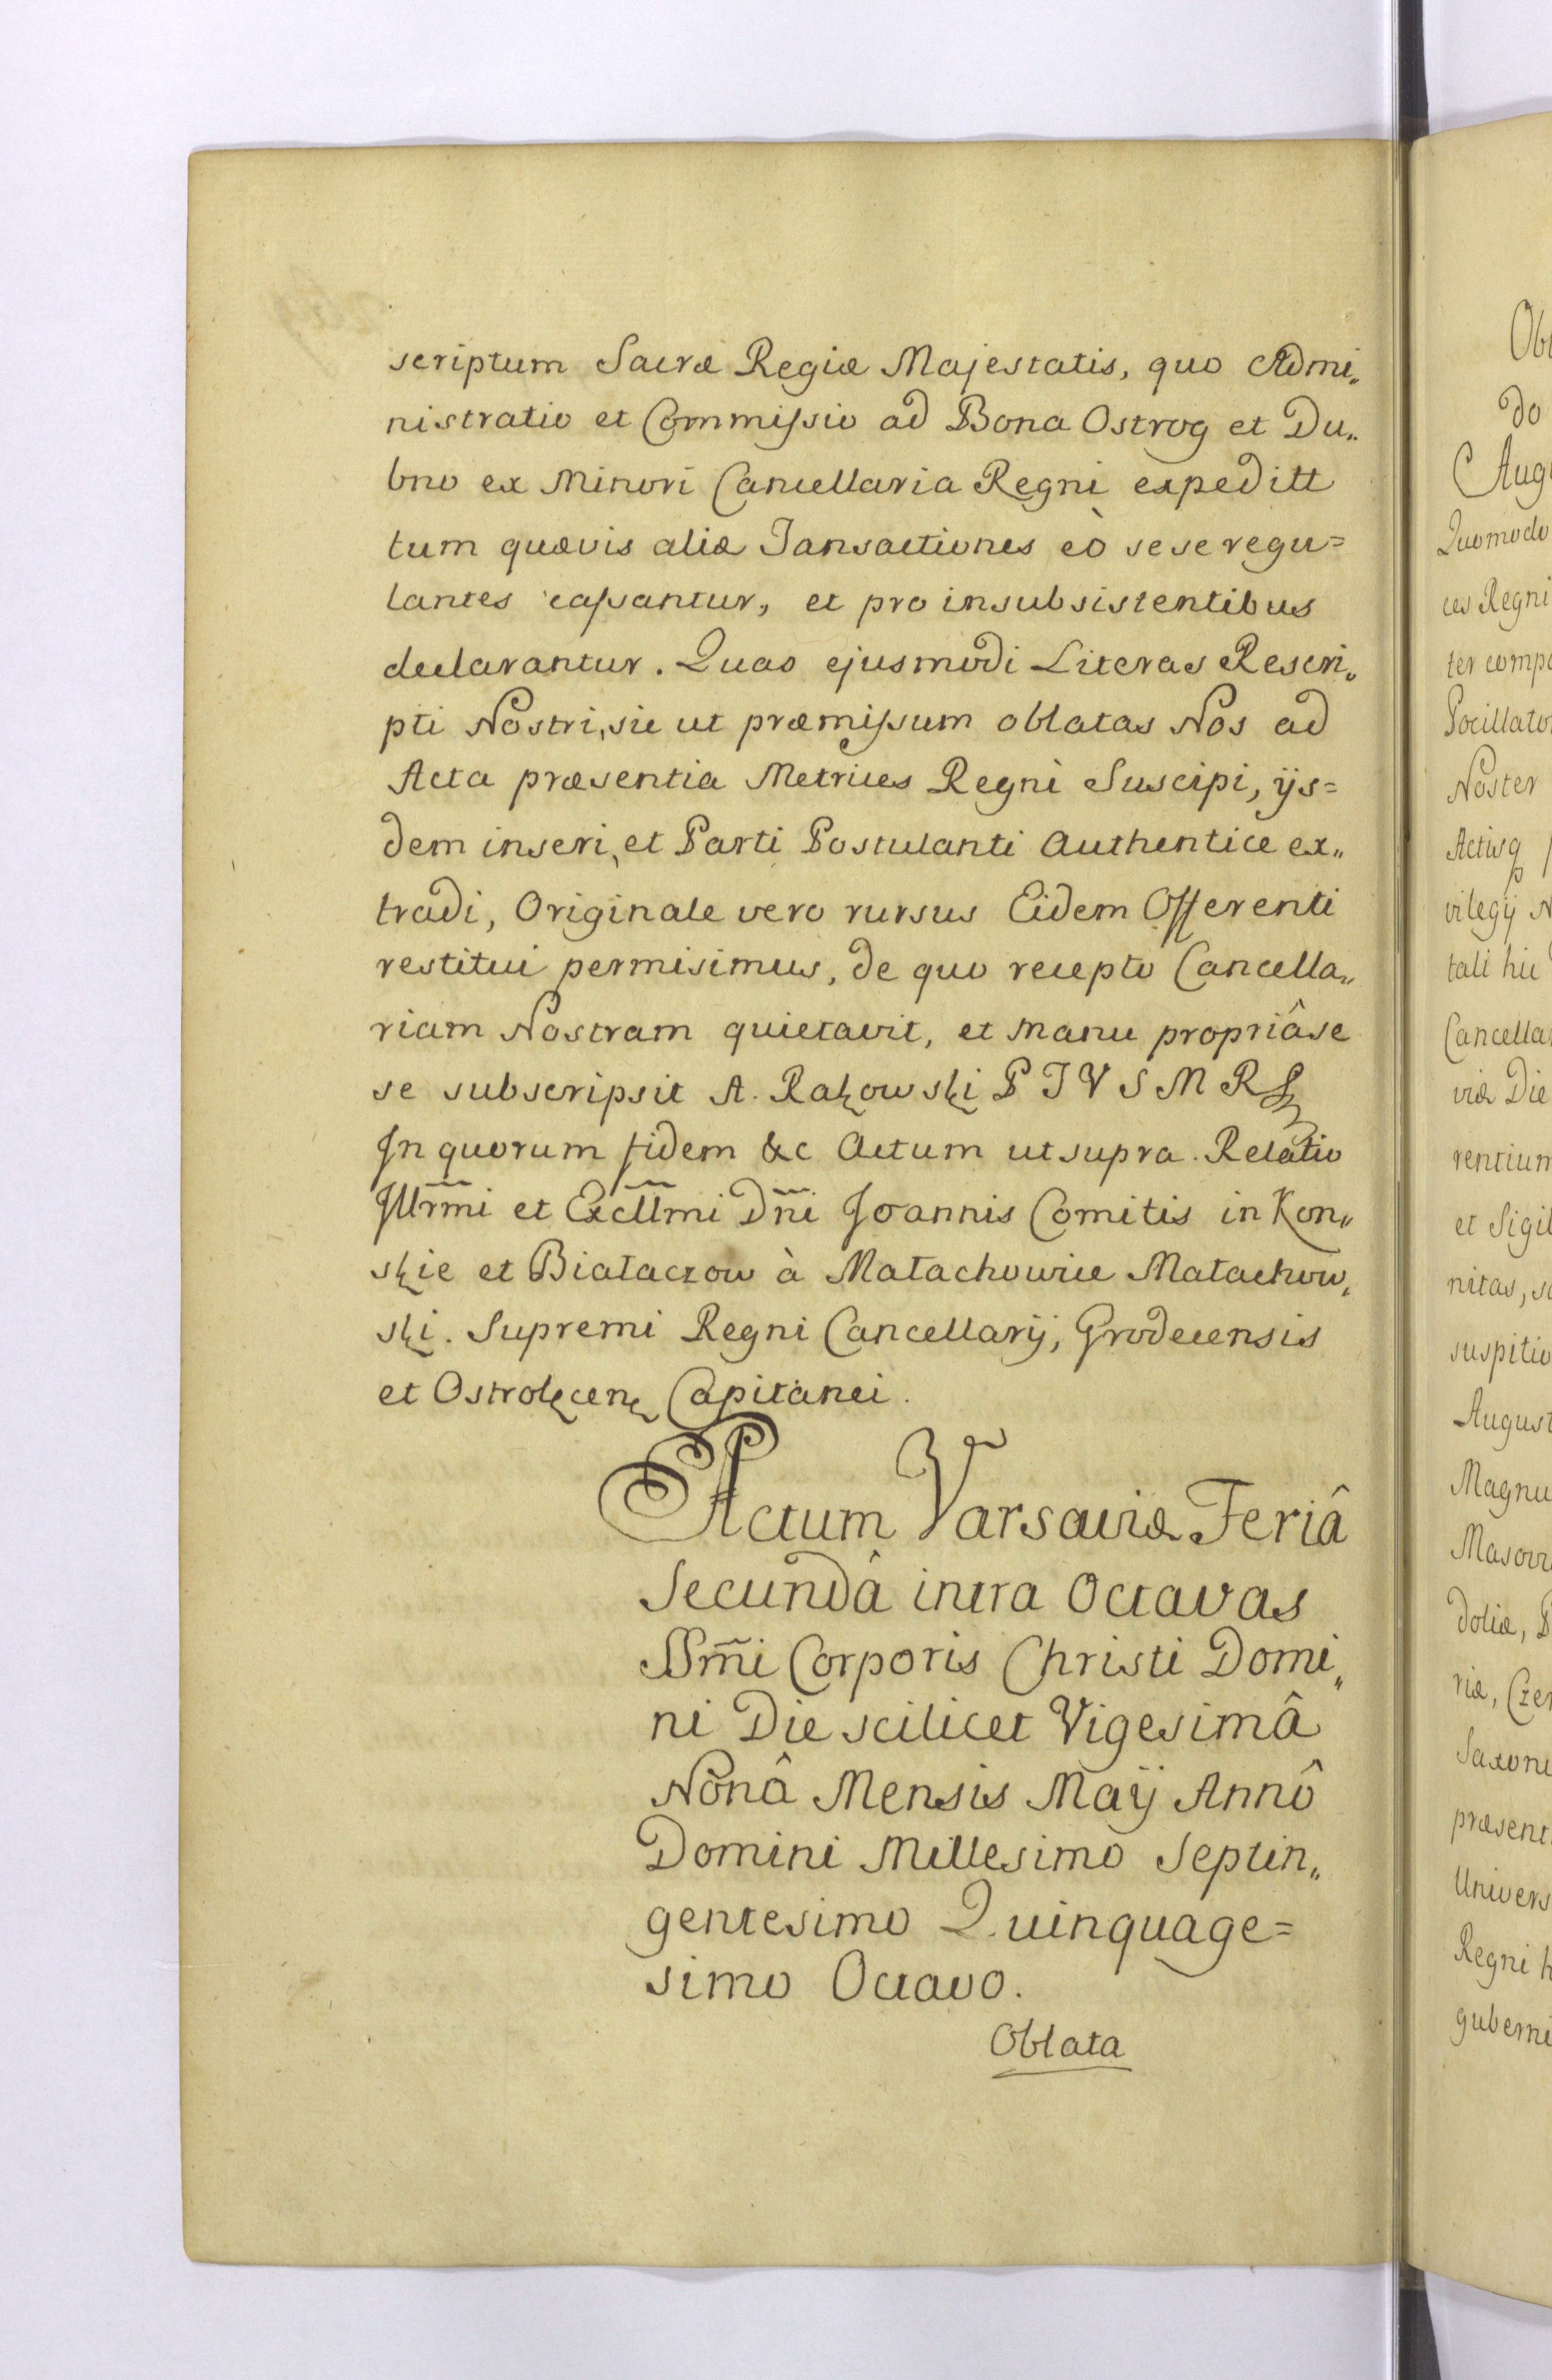 scriptum Sacræ Regiæ Majestatis, quo Admi„
nistratio et Commissio ad Bona Ostrog et Du„
bno ex Minori Cancellaria Regni expeditt
tum quævis aliæ Transactiones eò se se regu=
lantes cassantur, et pro insubsistentibus
declarantur. Quas ejusmodi Literas Rescri„
pti Nostri, sic ut præmissum oblatas Nos ad
Acta præsentia Metrices Regni Suscipi, ijs=
dem inseri, et Parti Postulanti Authentice ex„
tradi, Originale vero rursus Eidem Offerenti
restitui permisimus, de quo recepto Cancella„
riam Nostram quietavit, et manu propriâ se
se subscripsit A. Rakowski P J V S M R
In quorum fidem &c Actum ut supra. Relatio
Jllrm̃i et Excllm̃i Dñi Joannis Comitis in Kon„
skie et Białaczow à Małachowice Małachow„
ski. Supremi Regni Cancellarij, Grodecensis
et Ostrołęcen Capitanei.
Actum Varsaviæ Feriâ
Secundâ intra Octavas
SSm̃i Corporis Christi Domi„
ni Die scilicet Vigesimâ
Nonâ Mensis Maij Annô
Domini Millesimo Septin„
gentesimo Quinquage=
simo Octavo.
Oblata
Ob
do
Aug
Quomodo
ces Regni
ter comp
Pocillato
Noster
Actisq
vilegij N
tali hic
Cancella
viæ Die
rentium
et Sigil
nitas, s
suspitio
August
Magnu
Masov
doliæ, P
riæ, Czer
Saxoni
præsent
Univers
Regni h
guberni